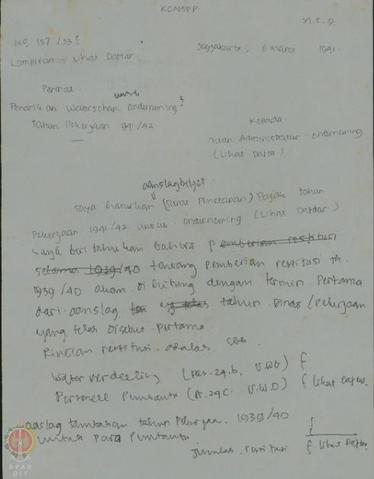 KONSEP
No. 157 /33 E
Jogjakarta, 6 Maret 1941.
Lampiran : Lihat Daftar
Perihal
untuk
Penarikan Waterschap Onderneming
Tahun Pekerjaan 1941/42
Kepada
Tuan Administratur Onderneming
(Lihat Daftar)
aanslagbiljet
Saya haturkan (Surat Penetapan) Pajak tahun
Pekerjaan 1941/42 untuk onderneming (Lihat Daftar)
Saya beri tahukan bahwa pemberian restitusi
selama 1939/40 tentang pemberian restitusi th.
1939/40 akan dihitung dengan termin pertama
dari aanslag tahun Dinas/Pekerjaan
yang telah disebut pertama
Rincian restitusi adalah sbb
Water verdeeling (Par. 29.b. V.W.D) f
Personeel Pembantu (P. 29C. V.W.D) f Lihat Daftar
aanslag tambahan tahun Pekerjaan 1939/40
untuk para Pembantu f
Jumlah restitusi f Lihat Daftar
BPAD
DIY